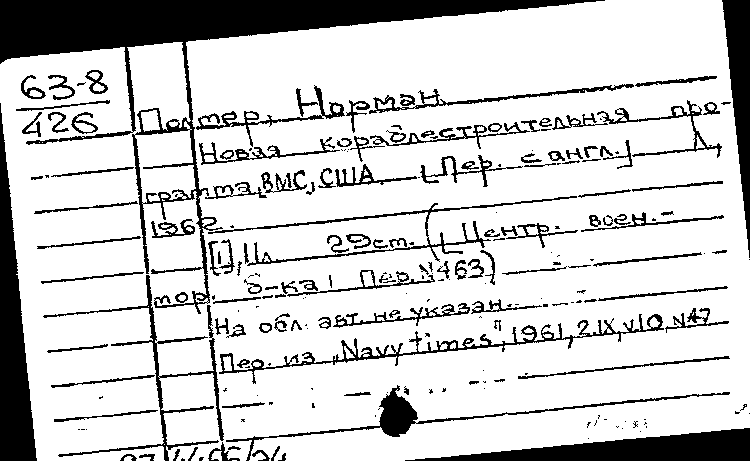 63-8
426
Полтер, Норман
Новая кораблестроительная про-
грамма ВМС, США. [Пер. с англ.] Л,
1962.
[1], 11л. 29cm. (Центр. воен.-
мор. б-ка! Пер. N463)
На обл. авт. не указан.
Пер. из "Navy times", 1961, 2.IX, v10, N47